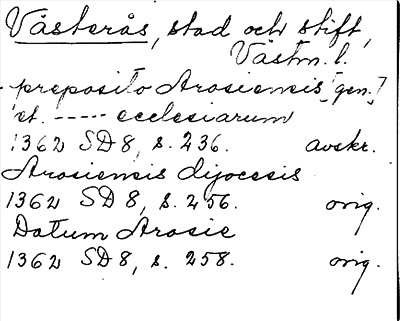 Västerås, stad och stift,
Västm. l.
preposito Arosiensis [gen.]
et. ----- ecclesiarum
1362 SD 8, s. 236. avskr.
Arosiensis dyocesis
1362 SD 8, s. 256. orig.
Datum Arosie
1362 SD 8, s. 258. orig.